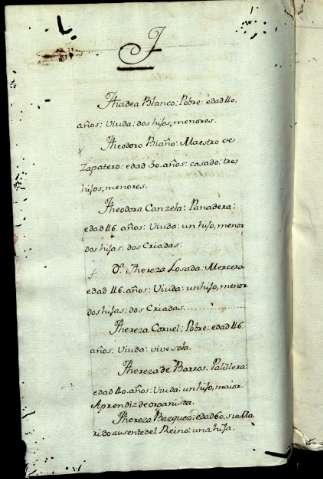 T
Thadea Blanco: Pobre: edad 40.
años: Viuda: dos hijos, menores.
Theodoro Maestro de
Zapatero: edad 50. años: casado: tres
hijos, menores.
Theodora Canzela: Panadera:
edad 46. años: Viuda: un hijo, menor
dos hijas: dos Criadas.
Dª. Thereza Losada: Mercera
edad 46. años: Viuda: un hijo, menor
dos hijas: dos Criadas
Thereza Pobre: edad 46
años: Viuda: vive sola.
Thereza de Barros:
edad 40. años: Viuda: un hijo, maior
Aprendiz de organista.
Thereza edad 60. su Ma
rido ausente del Reino: una hija.